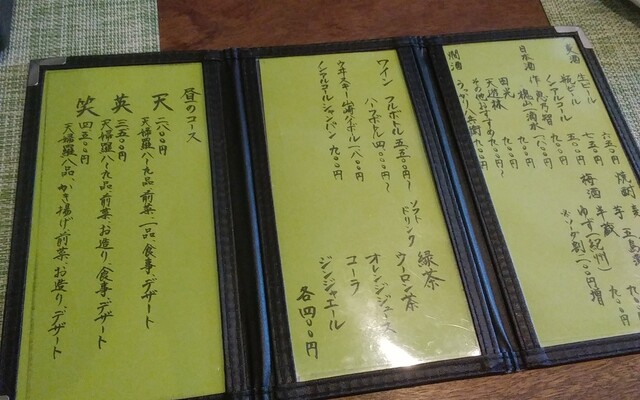 生ビール 六五〇円
瓶ビール 七五〇円
ノンアルコール 五〇〇円
日本酒 作 恵乃智 一八〇〇円
田光 九〇〇円
天遊林 九〇〇円
その他おすすめ 九〇〇円〜
燗酒
焼酎 麦
芋
梅酒 半蔵 九〇〇円
ゆず(紀州)
※ソーダ割一〇〇円増
ワイン フルボトル 五五〇〇円〜
ハーフボトル 四〇〇〇円〜
ウヰスキー 山崎ハイボール 一八〇〇円
ノンアルコールシャンパン 九〇〇円
ソフトドリンク
緑茶
ウーロン茶
オレンジジュース
コーラ
ジンジャエール
各四〇〇円
昼のコース
天 二八〇〇円
天婦羅八〜九品、前菜一品、食事、デザート
英 三五〇〇円
天婦羅八〜九品、前菜、お造り、食事、デザート
笑 四五〇〇円
天婦羅八品、かき揚げ、前菜、お造り、デザート